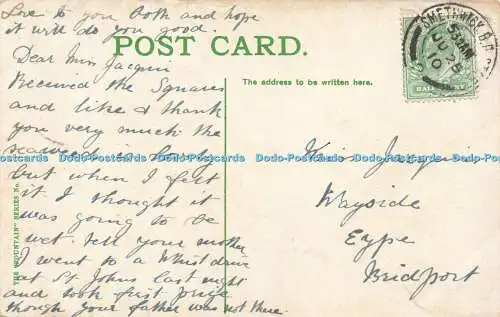 Love to you both and hope
it will do you good.
POST CARD.
The address to be written here.
SMETHWICK
5 AM
JU 28
10
Dear Miss Jacquin
Received the Squares
and like & thank
you very much the
seaweed is lovely
but when I felt
it I thought it
was going to be
wet. tell your mother
I went to a Whist drive
at St Johns last night
and took first prize
though your father was not there.
Miss Jacquin
Wayside
Eype
Bridport
THE "MOUNTAIN" SERIES No.
Postcards Postcards Postcards Postcards Postcards Postcards